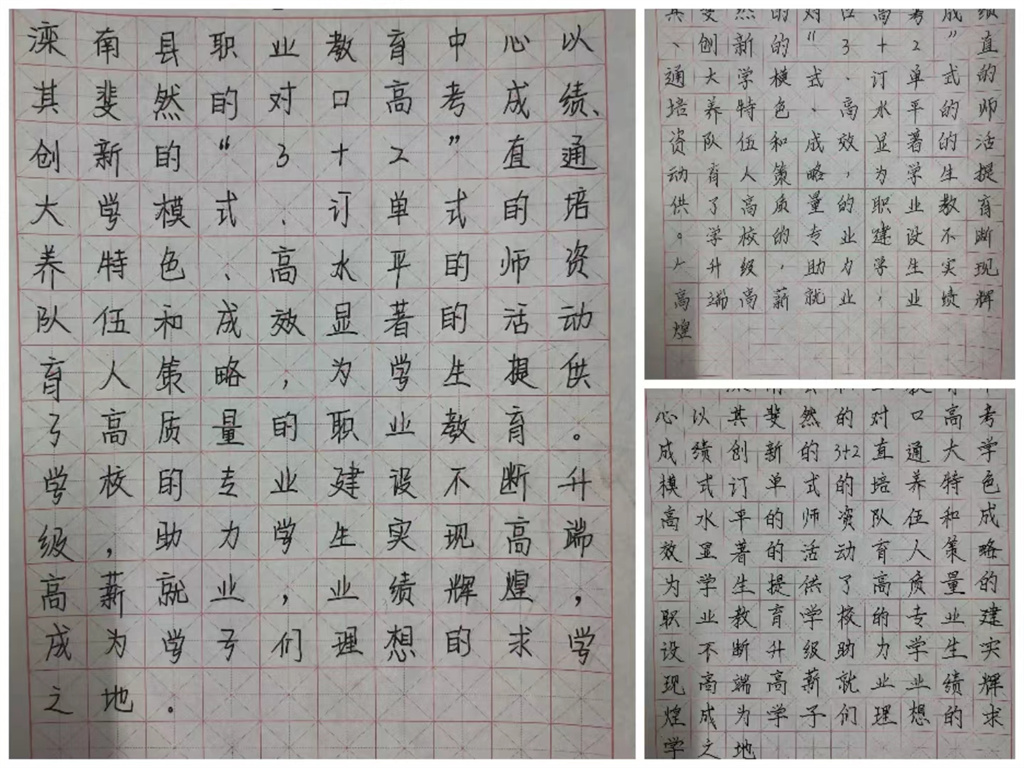 滦南县职业教育中心以
其斐然的对口高考成绩、
创新的“3+2”直通
大学模式、订单式的培
养特色、高水平的师资
队伍和成效显著的活动
育人策略，为学生提供
了高质量的职业教育。
学校的专业建设不断升
级，助力学生实现高端
高薪就业，业绩辉煌，
成为学子们理想的求学
之地。
其斐然的对口高考成绩
、创新的“3+2”直
通大学模式、订单式的
培养特色、高水平的师
资队伍和成效显著的活
动育人策略，为学生提
供了高质量的职业教育
。学校的专业建设不断
升级，助力学生实现
高端高薪就业，业绩辉
煌
心以其斐然的对口高考
成绩创新的3+2直通大学
模式订单式的培养特色
高水平的师资队伍和成
效显著的活动育人策略
为学生提供了高质量的
职业教育学校的专业建
设不断升级助力学生实
现高端高薪就业业绩辉
煌成为学子们理想的求
学之地